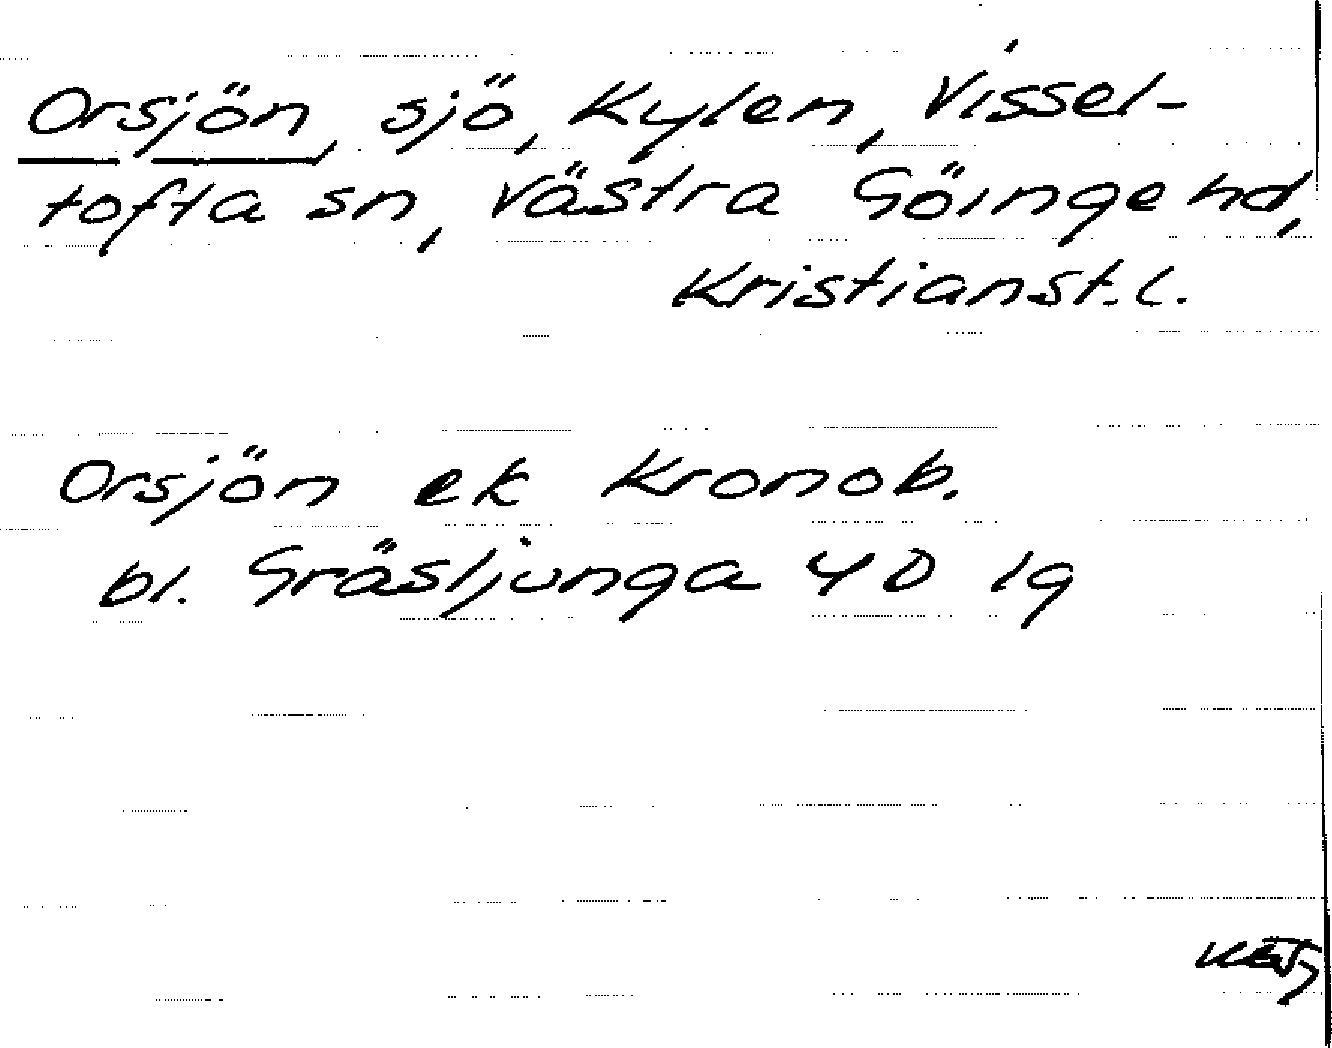 Orsjön, sjö, Kylen, Vissel-
tofta sn, Västra Göinge hd,
Kristianst. l.
Orsjön ek Kronob.
bl. Gräsljunga 4 D 1g